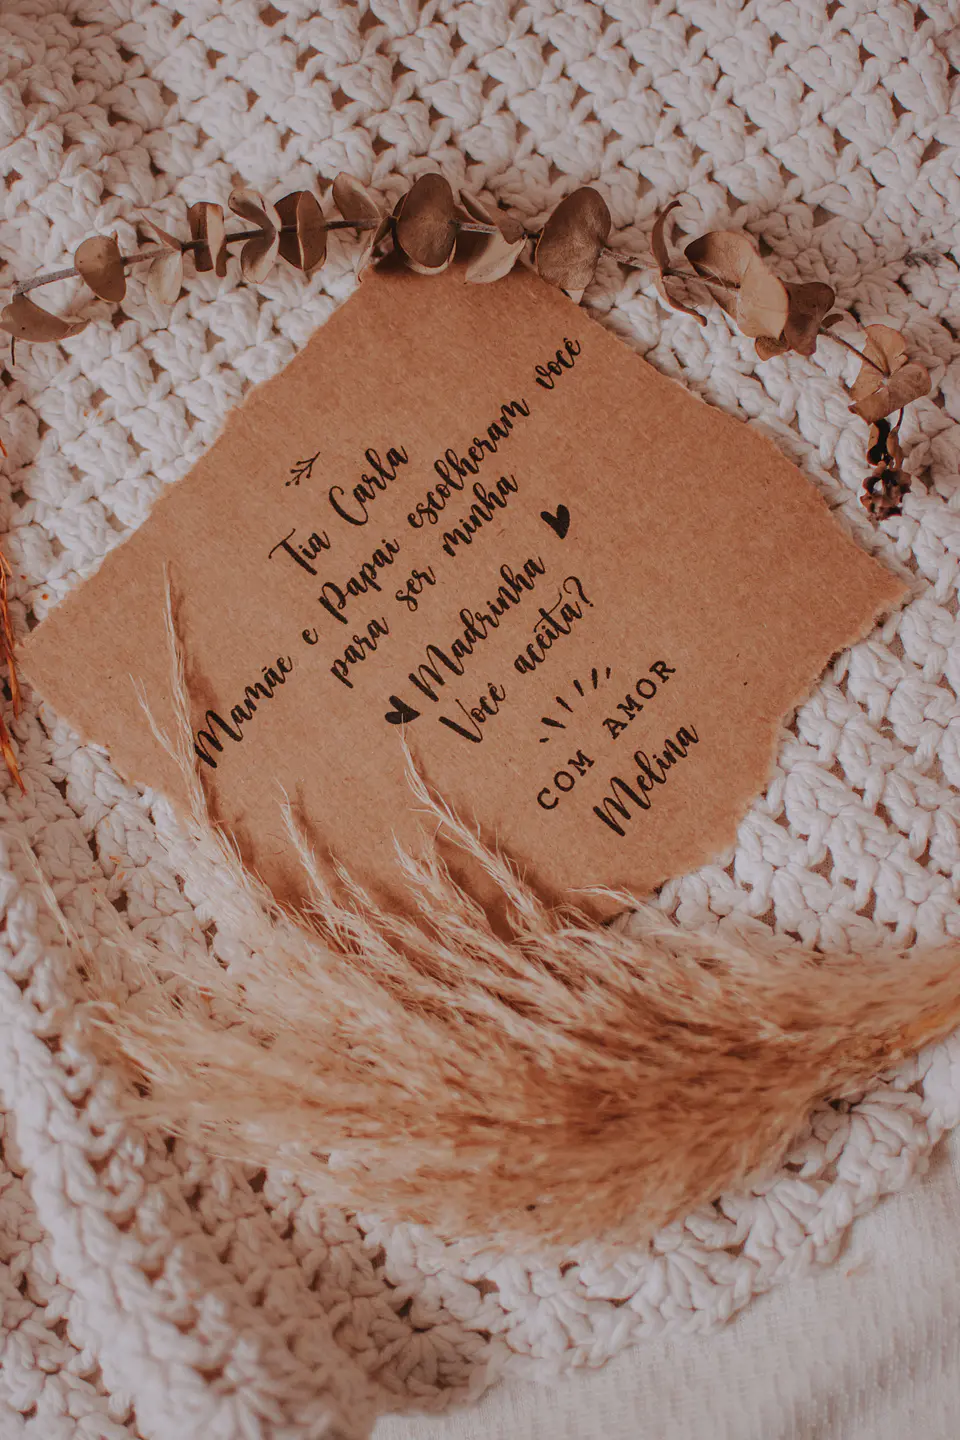 Tia Carla
Mamãe e Papai escolheram você
para ser minha
Madrinha
Você aceita?
COM AMOR
Melina